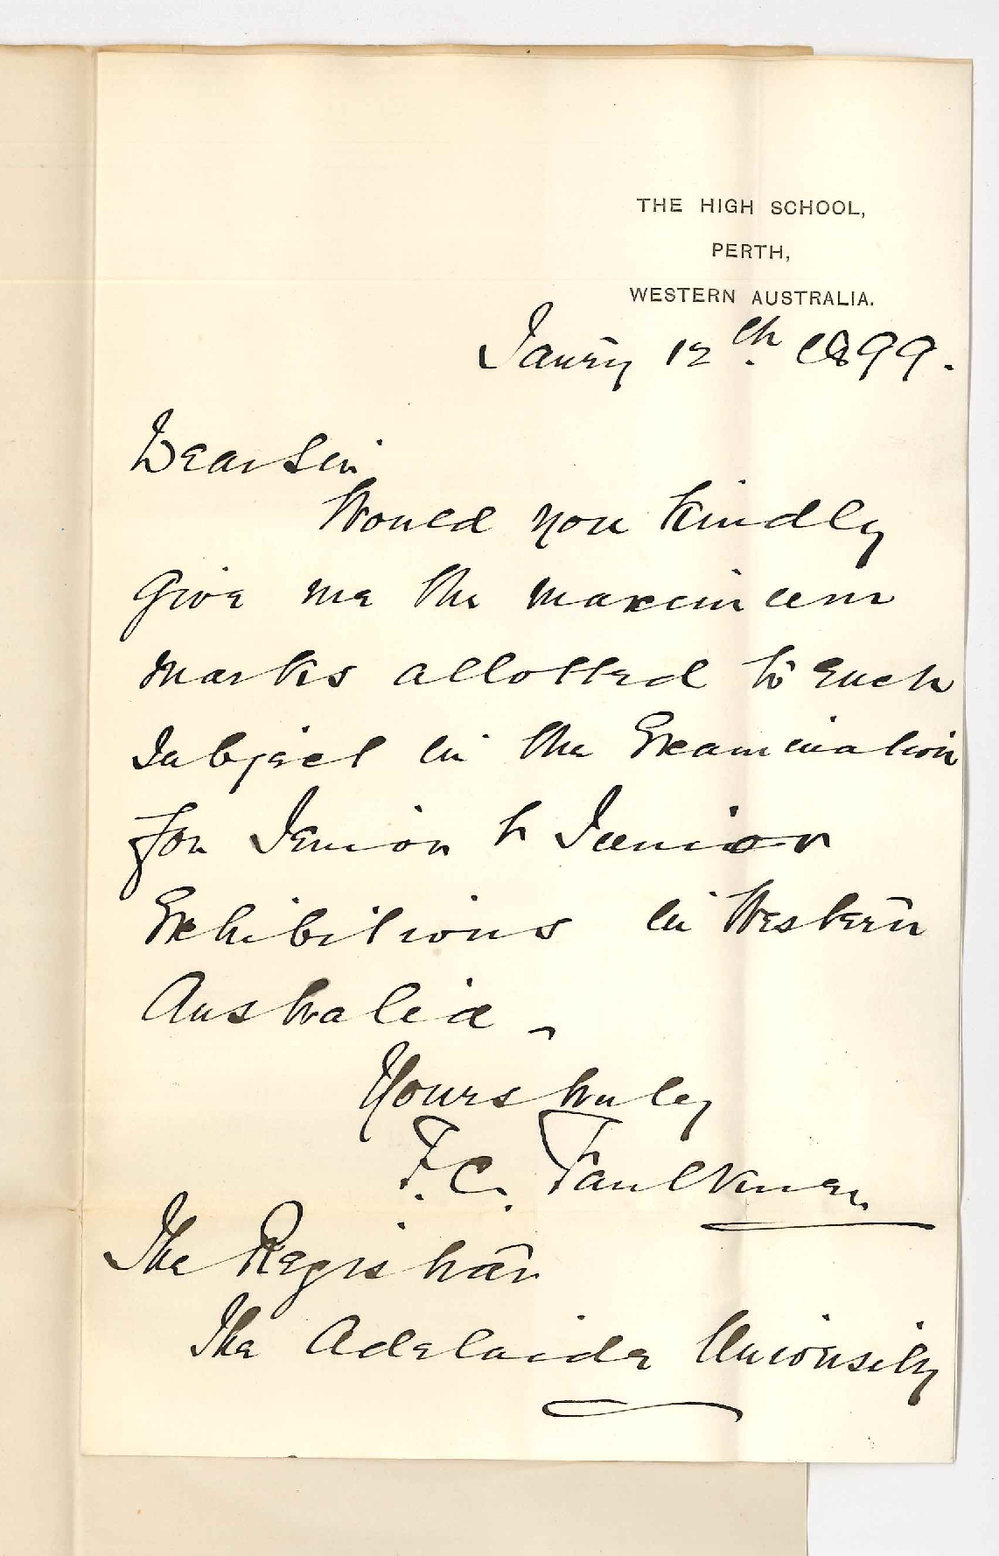 THE HIGH SCHOOL,
PERTH,
WESTERN AUSTRALIA.
Janry 12th. 1899.
Dear Sir,
Would you kindly
give me the maximum
marks allotted to each
subject in the Examination
for Senior & Junior
Exhibitions in Western
Australia.
Yours truly
F. C. Faulkner.
The Registrar
The Adelaide University